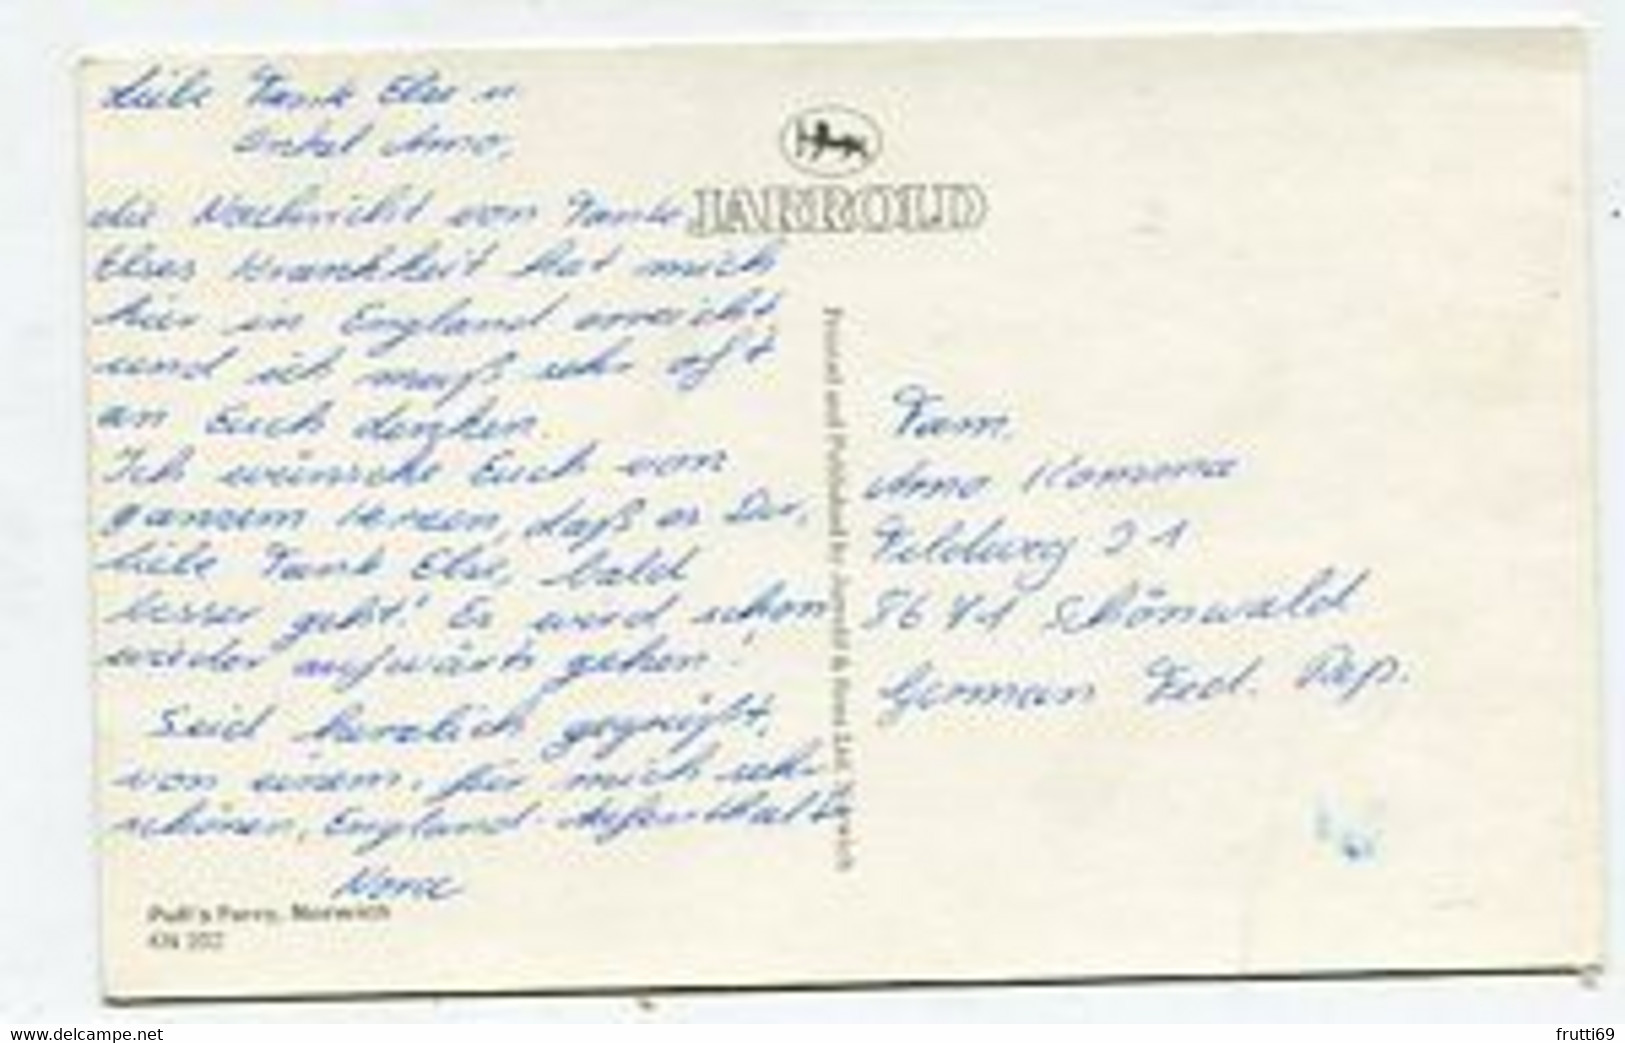 Liebe Tante Else u.
Onkel Arno,
die Nachricht von Tante
Elses Krankheit hat mich
hier in England erreicht
und ich muß sehr oft
an Euch denken.
Ich wünsche Euch von
ganzem Herzen, daß es Dir,
liebe Tante Else, bald
besser geht! Es wird schon
wieder aufwärts gehen!
Seid herzlich gegrüßt,
von einem, für mich sehr
schönen, England-Aufenthalt
Nora
Pull's Ferry, Norwich
KN 202
JARROLD
Printed and Published by Jarrold & Sons Ltd. Norwich
Fam.
Arno Komma
Feldweg 21
8671 Schönwald
German Fed. Rep.
delcampe.net
frutti69